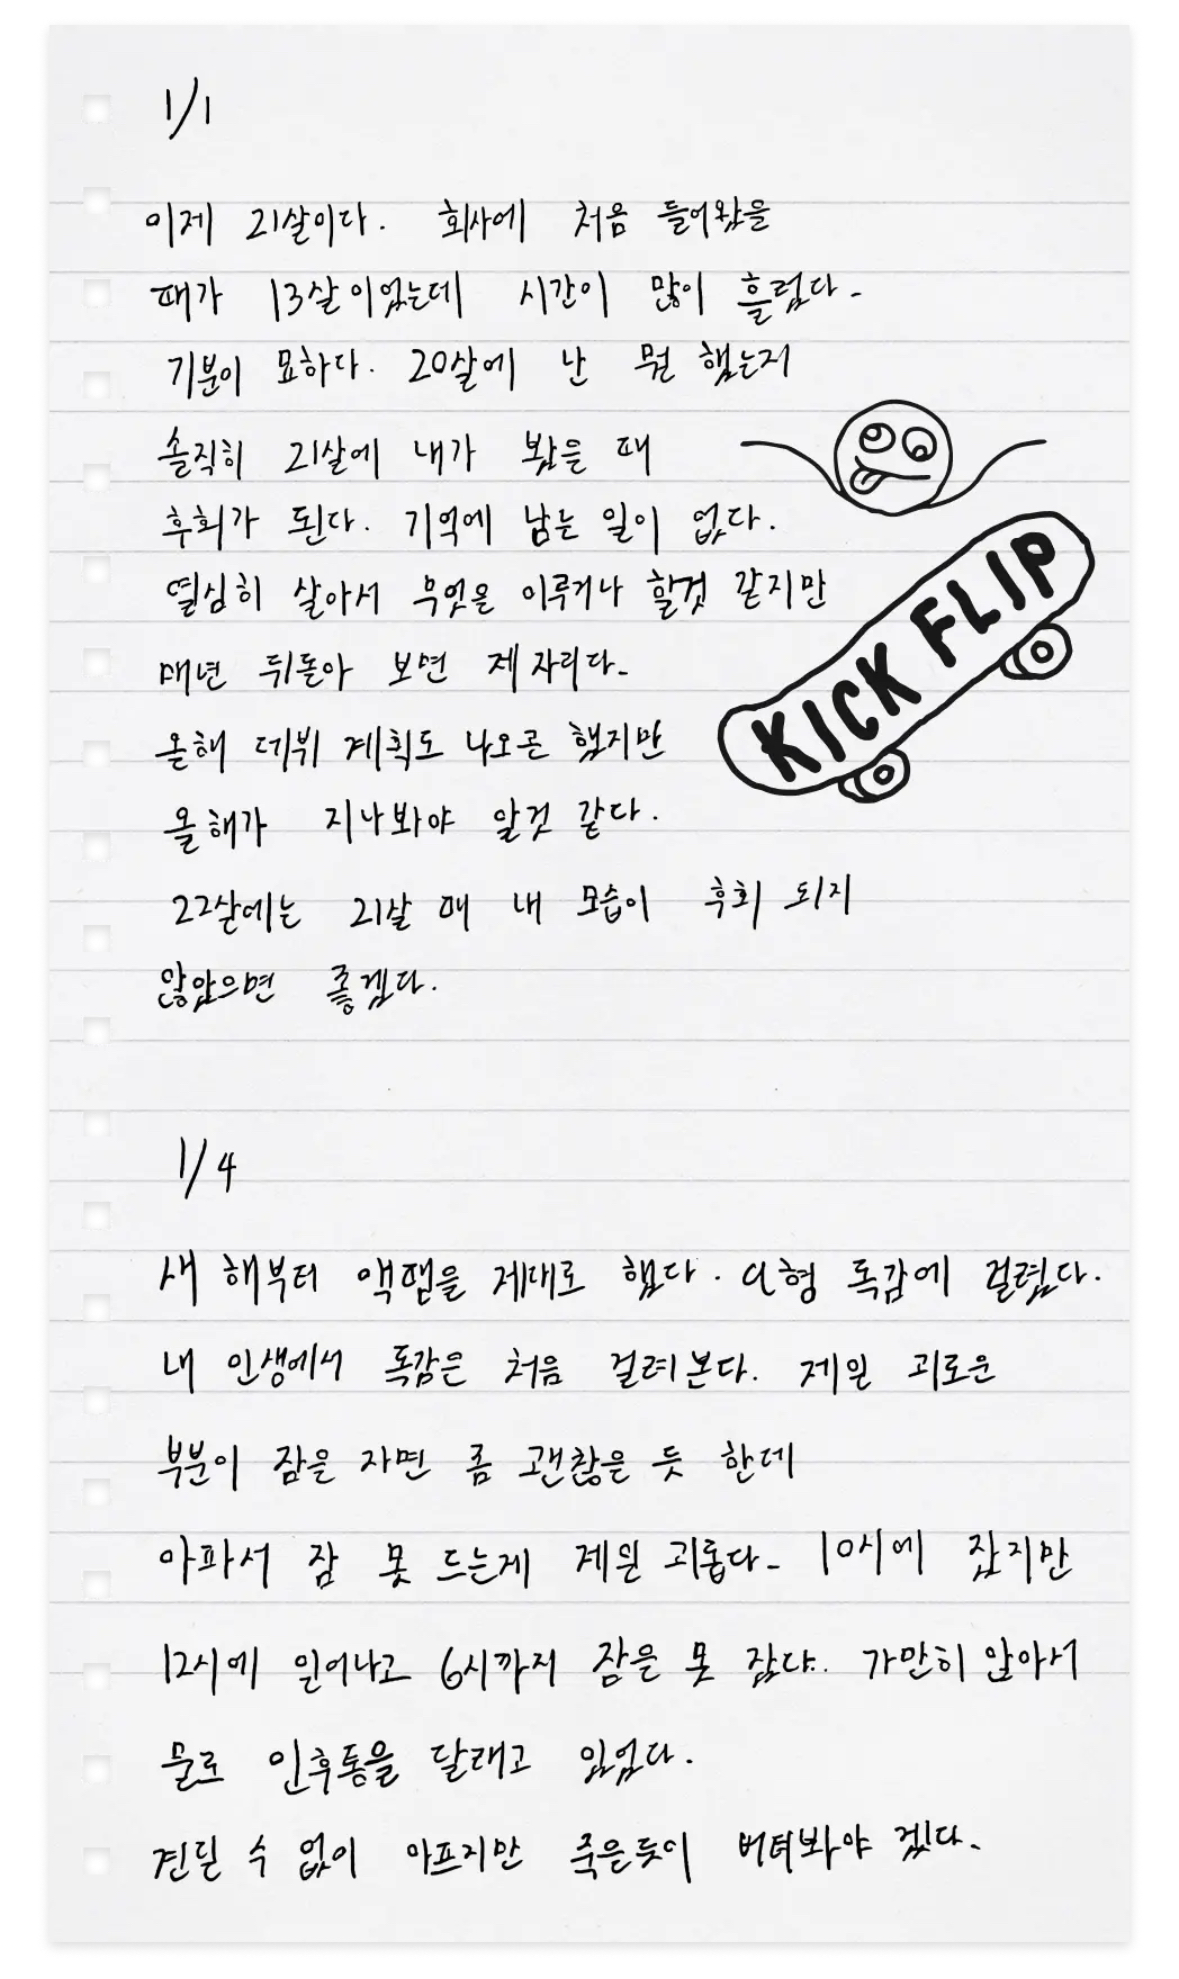 1/1
이제 21살이다. 회사에 처음 들어왔을
때가 13살이었는데 시간이 많이 흘렀다.
기분이 묘하다. 20살에 난 뭘 했는지
솔직히 21살에 내가 봤을 때
후회가 된다. 기억에 남는 일이 없다.
열심히 살아서 무엇을 이루거나 할것 같지만
매년 뒤돌아 보면 제자리다.
올해 데뷔 계획도 나오곤 했지만
올해가 지나봐야 알것 같다.
22살에는 21살 때 내 모습이 후회 되지
않았으면 좋겠다.
KICK FLIP
1/4
새 해부터 액땜을 제대로 했다. a형 독감에 걸렸다.
내 인생에서 독감은 처음 걸려본다. 제일 괴로운
부분이 잠을 자면 좀 괜찮을 듯 한데
아파서 잠 못 드는게 제일 괴롭다. 10시에 잤지만
12시에 일어나고 6시까지 잠을 못 잤다.. 가만히 앉아서
물로 인후통을 달래고 있었다.
견딜 수 없이 아프지만 죽은듯이 버텨봐야 겠다.